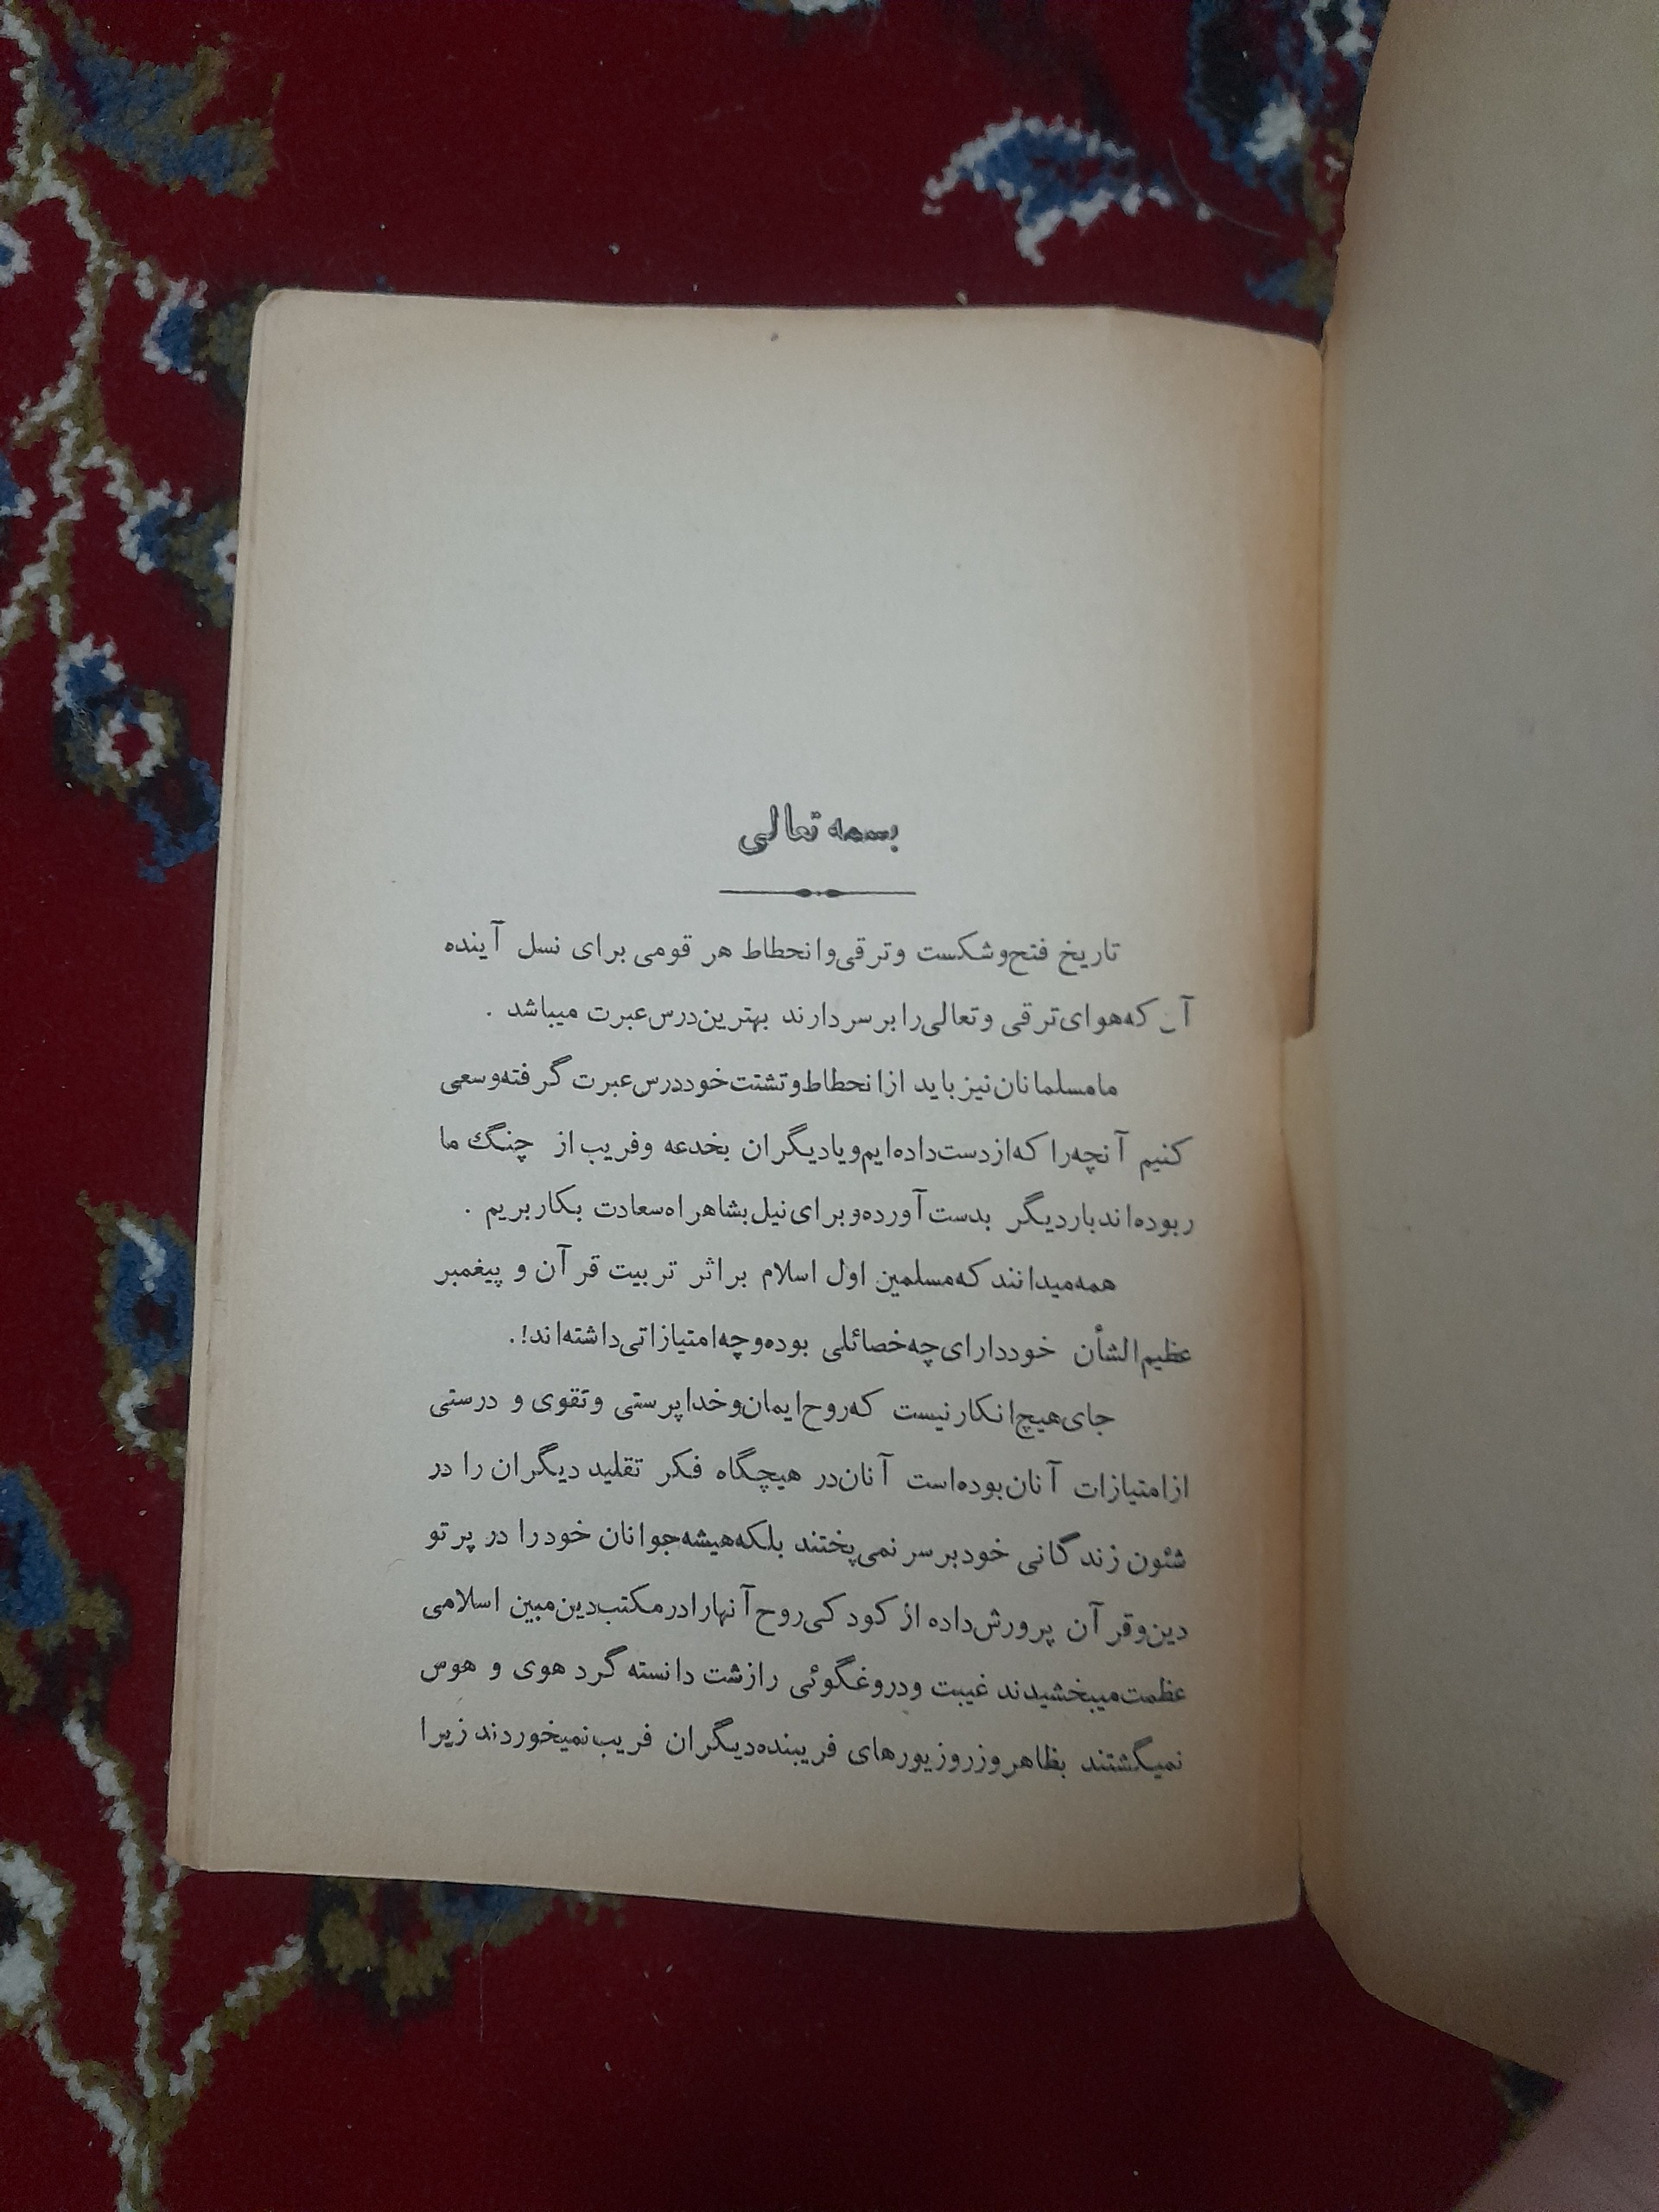 بسمه تعالی
تاریخ فتح و شکست و ترقی و انحطاط هر قومی برای نسل آینده
که هوای ترقی و تعالی را بر سر دارند بهترین درس عبرت میباشد .
ما مسلمانان نیز باید از انحطاط و تشتت خود درس عبرت گرفته و سعی
کنیم آنچه را که از دست داده ایم و یا دیگران بخدعه و فریب از چنگ ما
ربوده اند بار دیگر بدست آورده و برای نیل بشاهراه سعادت بکار بریم .
همه میدانند که مسلمین اول اسلام بر اثر تربیت قرآن و پیغمبر
عظیم الشأن خود دارای چه خصائلی بوده و چه امتیازاتی داشته اند!.
جای هیچ انکار نیست که روح ایمان و خدا پرستی و تقوی و درستی
از امتیازات آنان بوده است آنان در هیچگاه فکر تقلید دیگران را در
شئون زندگانی خود بر سر نمی پختند بلکه همیشه جوانان خود را در پرتو
دین و قرآن پرورش داده از کودکی روح آنها را در مکتب دین مبین اسلامی
عظمت میبخشیدند غیبت و دروغگوئی را زشت دانسته گرد هوی و هوس
نمیگشتند بظاهر و زر و زیورهای فریبنده دیگران فریب نمیخوردند زیرا